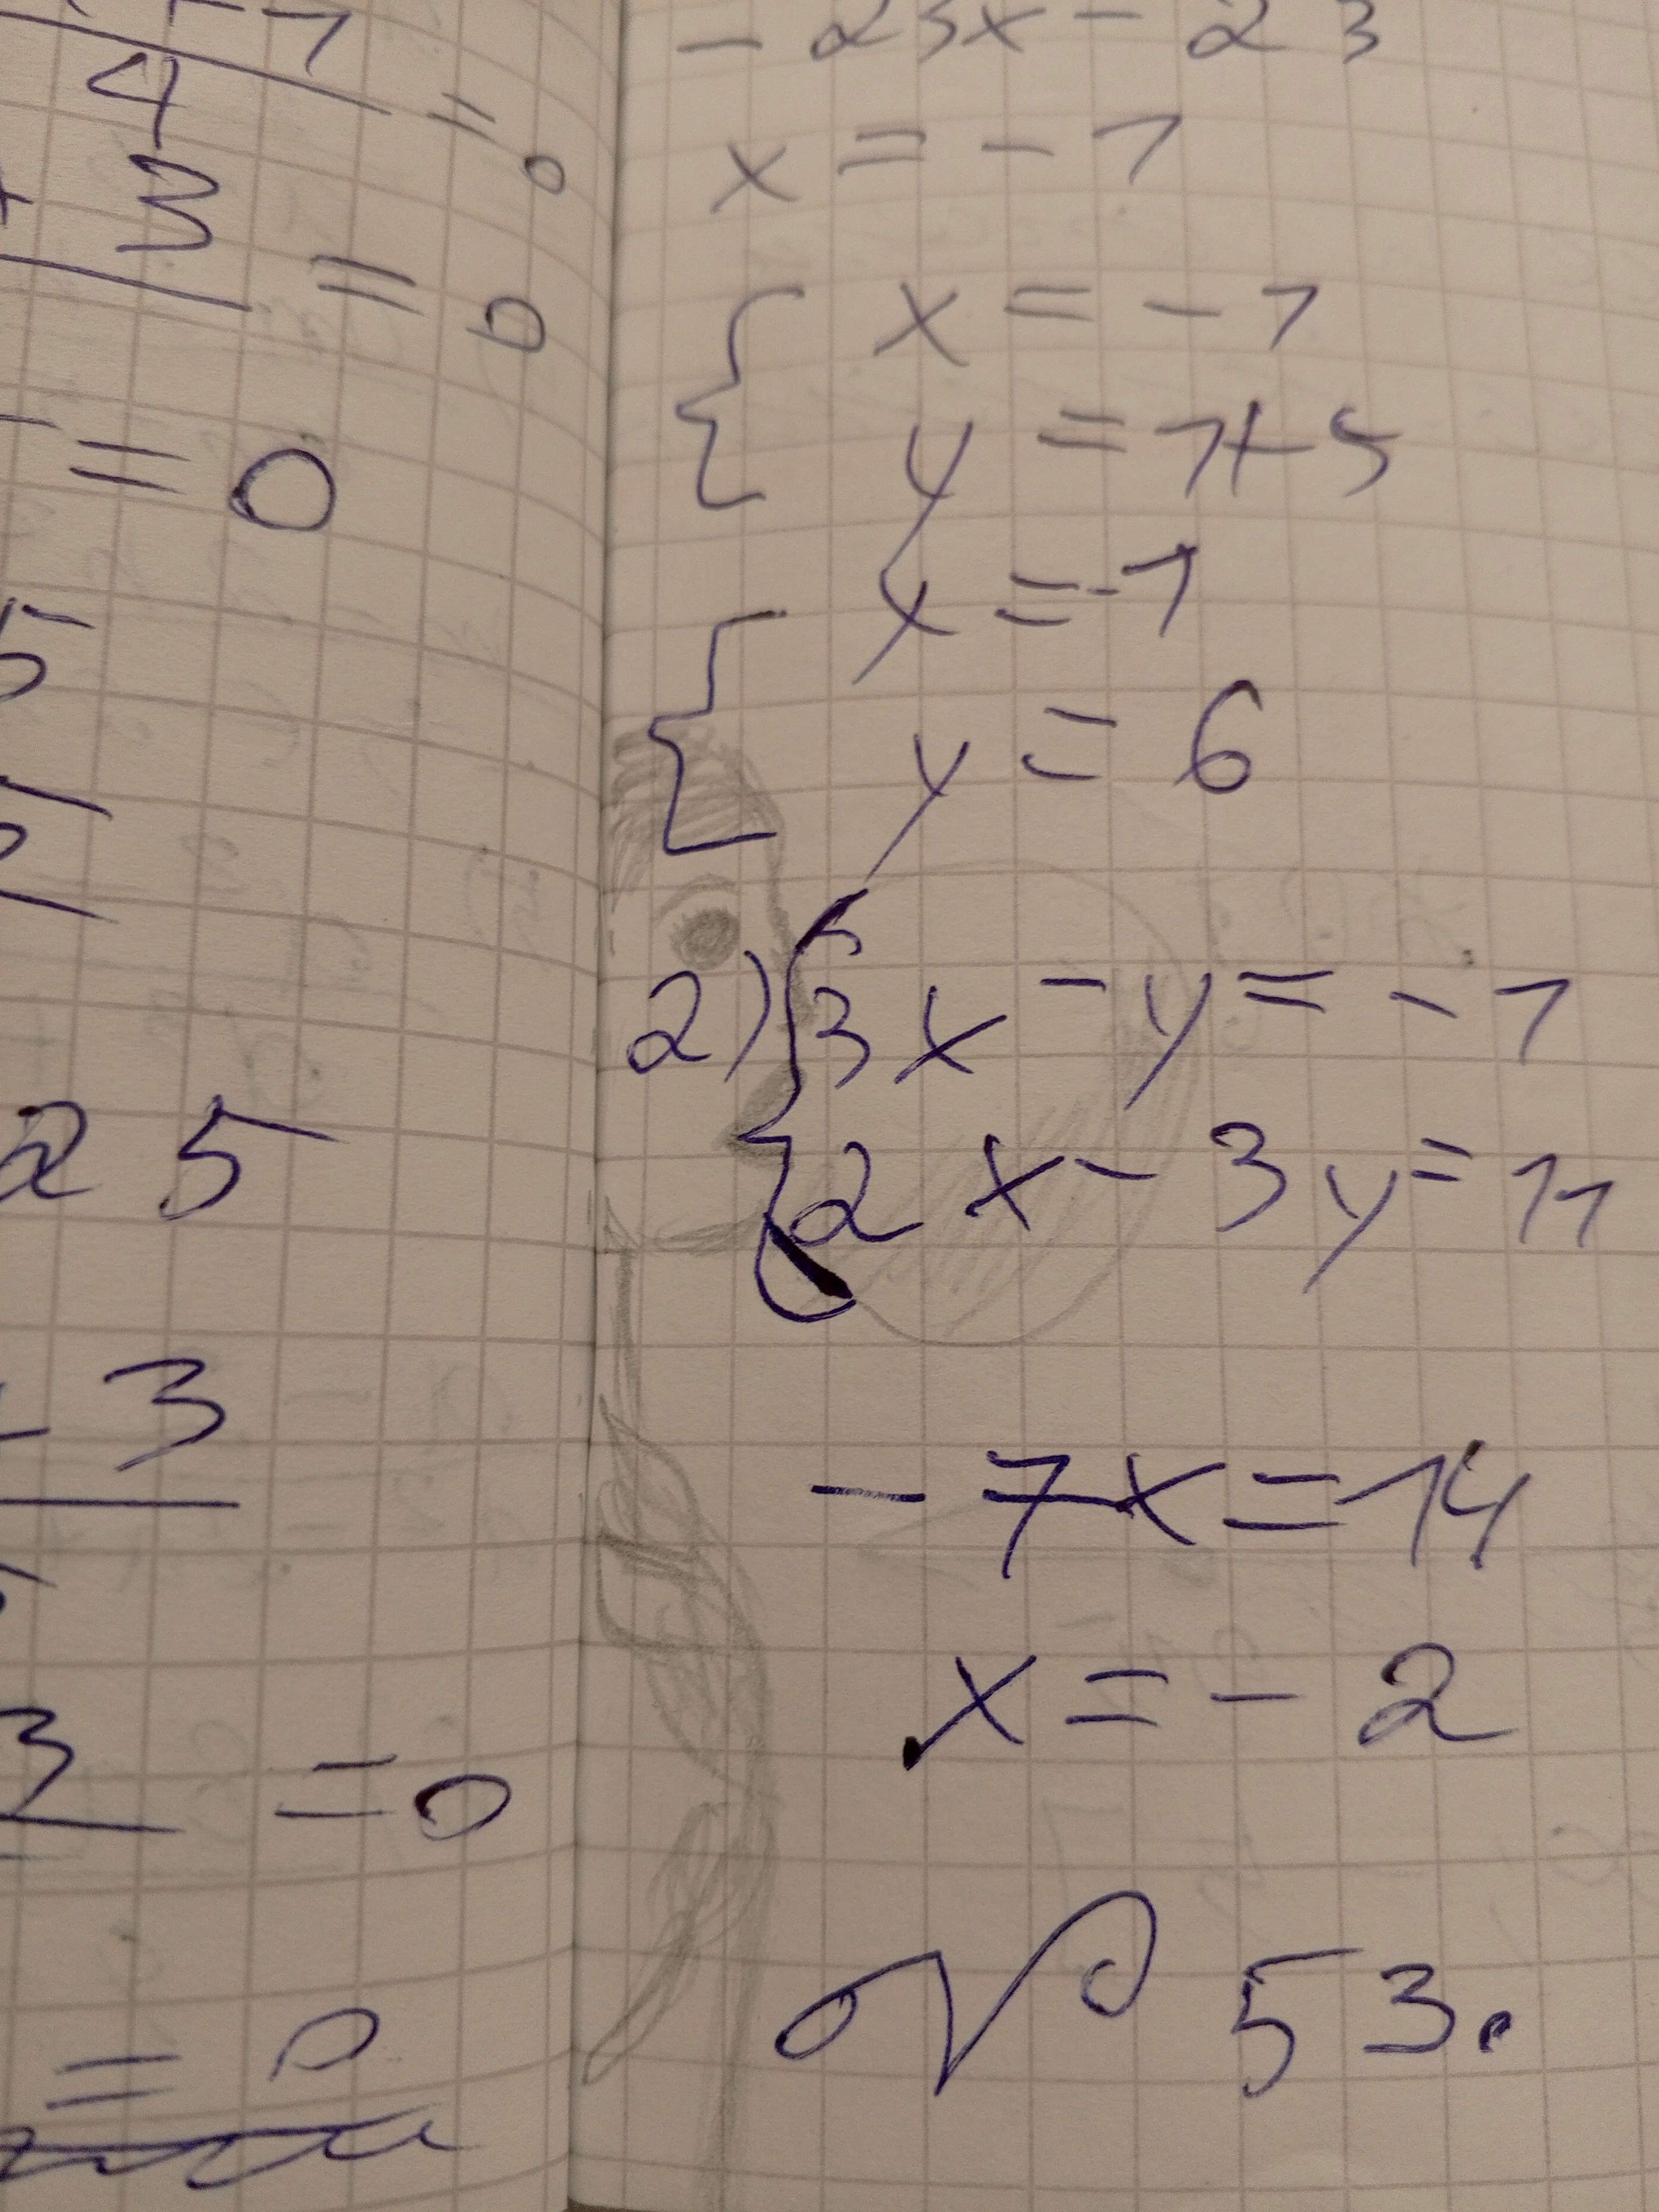 4
= 0
+ 3
= 0
= 0
5
25
+ 3
3 = 0
= 0
- 23x - 23
x = - 1
{ x = - 1
y = 1 + 5
{ x = - 1
y = 6
2) { 3x - y = - 1
2x - 3y = 11
- 7x = 14
x = - 2
№ 53.